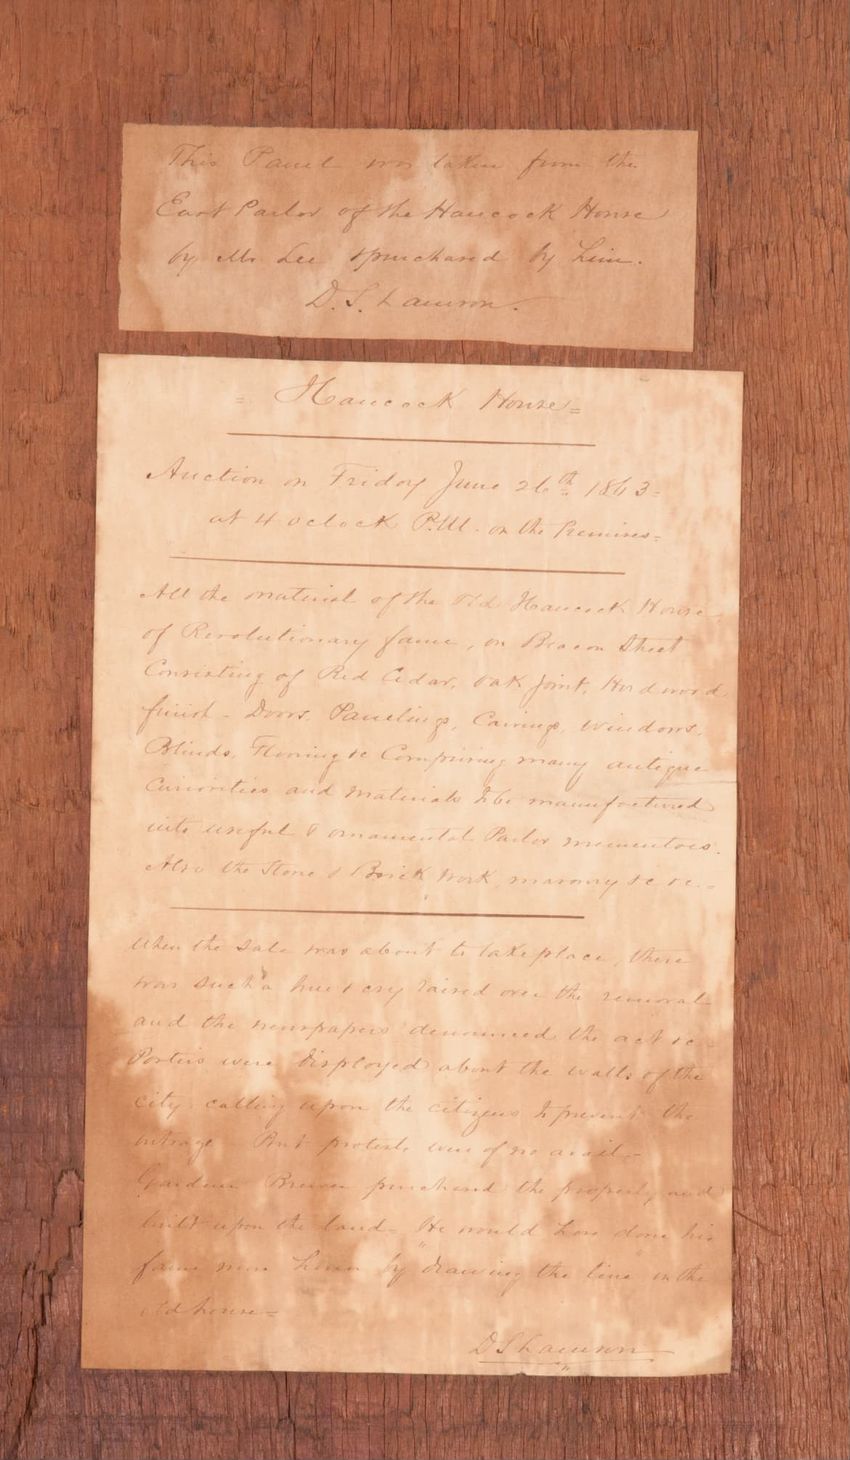 This Panel was taken from the
East Parlor of the Hancock House
by Mr Lee & purchased by him.
D. S. Lawson.
= Hancock House =
Auction on Friday June 26th 1863 =
at 4 oclock P.M. on the Premises =
All the material of the Old Hancock House
of Revolutionary fame, on Beacon Street
Consisting of Red Cedar, Oak Joint, Hard wood
finish - Doors, Panelings, Carvings, Windows,
Blinds, Flooring &c Comprising many antique
Curiosities and materials to be manufactured
into useful & ornamental Parlor mementoes.
Also the Stone & Brick work, masonry &c &c. =
When the sale was about to take place, there
was such a hue & cry raised over the removal
and the newspapers denounced the act &c -
Posters were displayed about the walls of the
city calling upon the citizens to prevent the
outrage - But protests were of no avail -
Gardner Brewer purchased the property and
built upon the land - He would have done his
fame more honor by "drawing the line" on the
old house =
D S Lawson